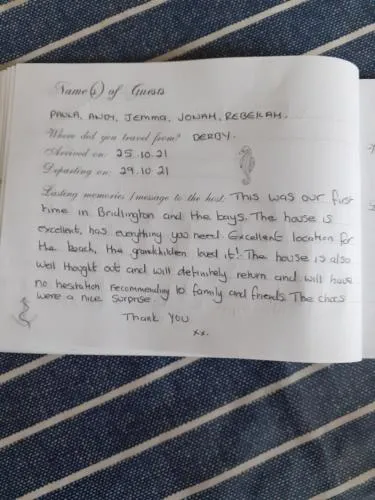 Name(s) of Guests
PAULA, ANDY, JEMMA, JONAH, REBEKAH.
Where did you travel from? DERBY.
Arrived on: 25.10.21
Departing on: 29.10.21
Lasting memories / message to the host: This was our first
time in Bridlington and the bays. The house is
excellent, has everything you need. Excellent location for
the beach, the grandchildren loved it! The house is also
well thought out and will definitely return and will have
no hesitation recommending to family and friends. The chocs
were a nice surprise.
Thank You
xx.